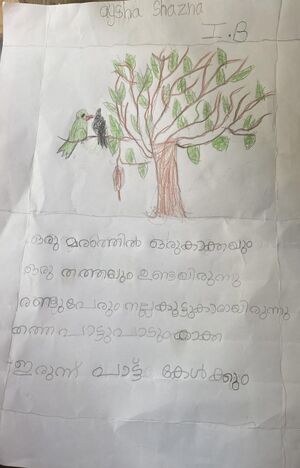 aysha shazna
I.B
ഒരു മരത്തിൽ ഒരുകാക്കയും
ഒരു തത്തയും ഉണ്ടായിരുന്നു
രണ്ടുപേരും നല്ലകൂട്ടുകാരായിരുന്നു
തത്ത പാട്ടുപാടും കാക്ക
ഇരുന്ന് പാട്ട് കേൾക്കും